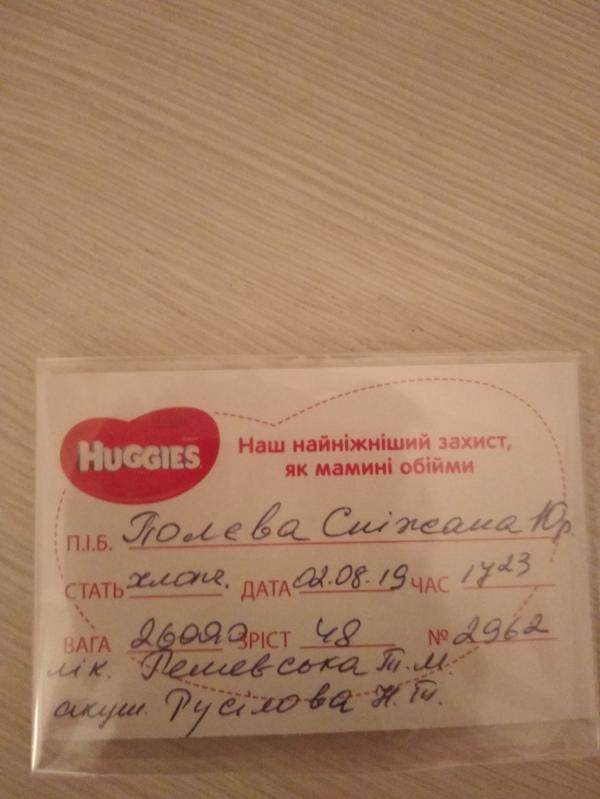 HUGGIES
Наш найніжніший захист,
як мамині обійми
П.І.Б. Полєва Сніжана Юр.
СТАТЬ хлопч. ДАТА 02.08.19 ЧАС 17 23
ВАГА 2600 ЗРІСТ 48 № 2962
лік. Т. М.
акуш. Русілова Н. Т.